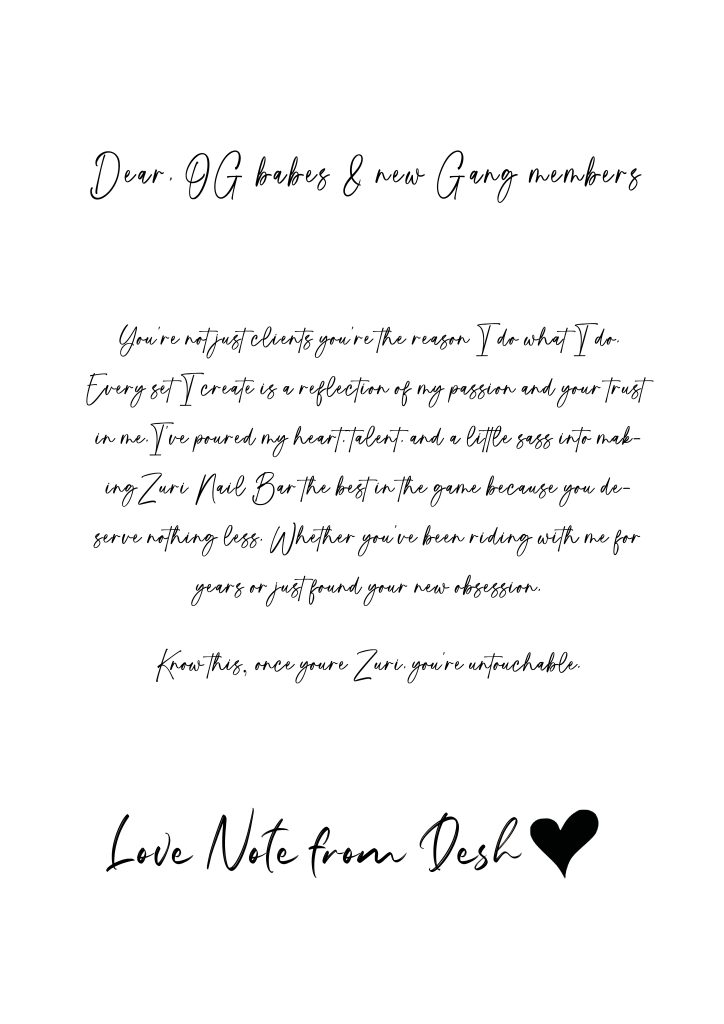 Dear, OG babes & new Gang members
You're not just clients you're the reason I do what I do.
Every set I create is a reflection of my passion and your trust
in me. I've poured my heart, talent, and a little sass into mak-
ing Zuri Nail Bar the best in the game because you de-
serve nothing less. Whether you've been riding with me for
years or just found your new obsession.
Know this, once youre Zuri, you're untouchable.
Love Note from Desh